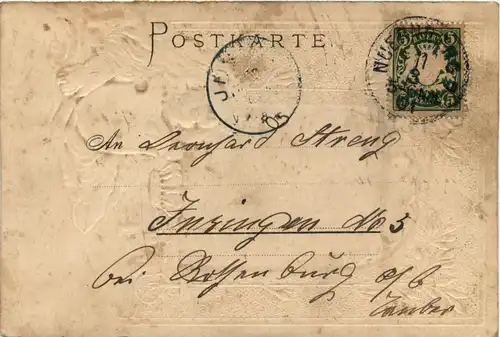 POSTKARTE.
5 BAYERN 5
5 5
An Leonhard Streng
Insingen No 5
bei Rothenburg o/b
Tauber